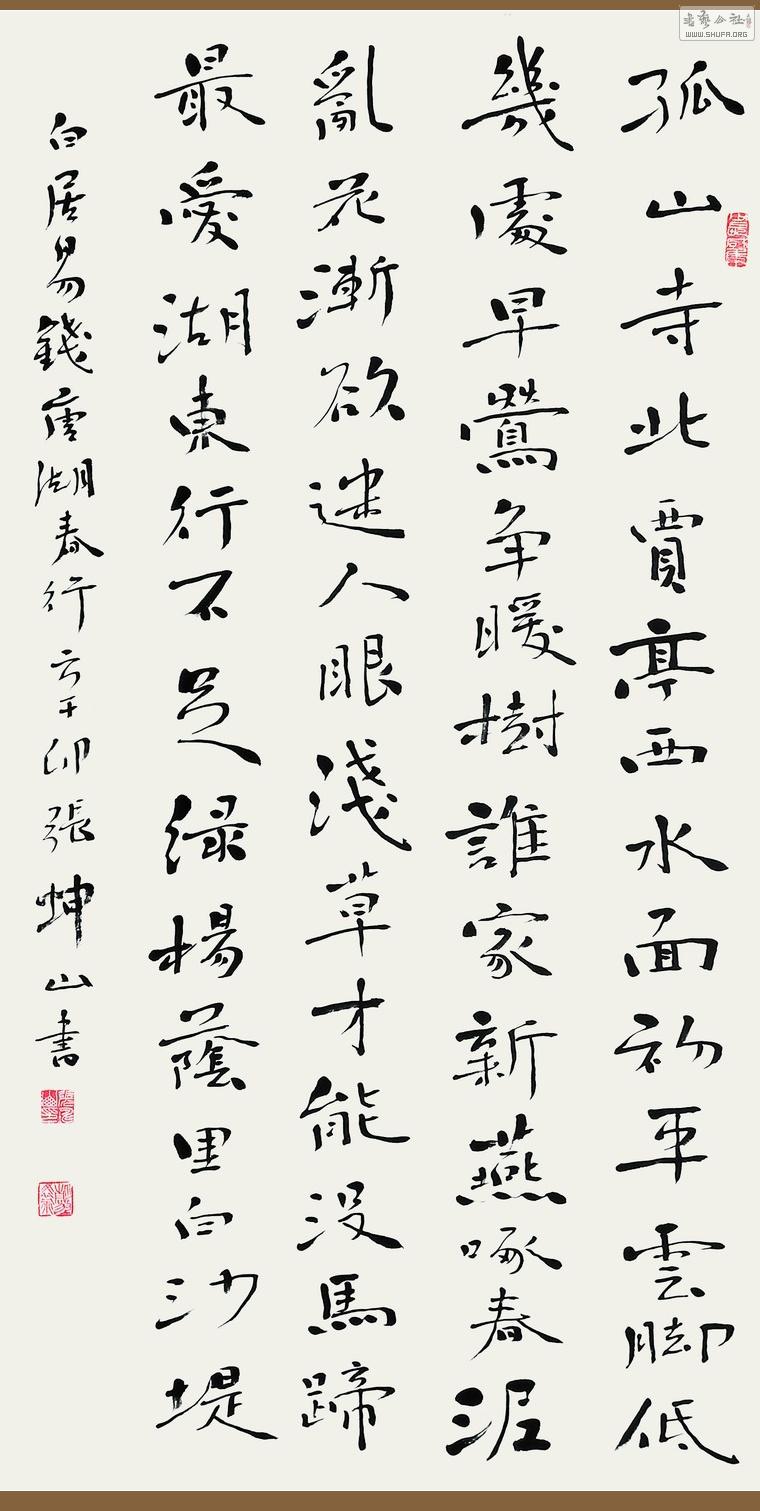 孤山寺北賈亭西水面初平雲脚低
幾處早鶯争暖樹誰家新燕啄春泥
亂花漸欲迷人眼淺草才能沒馬蹄
最愛湖東行不足绿楊蔭里白沙堤
白居易錢唐湖春行 張坤山书
书艺公社
WWW.SHUFA.ORG